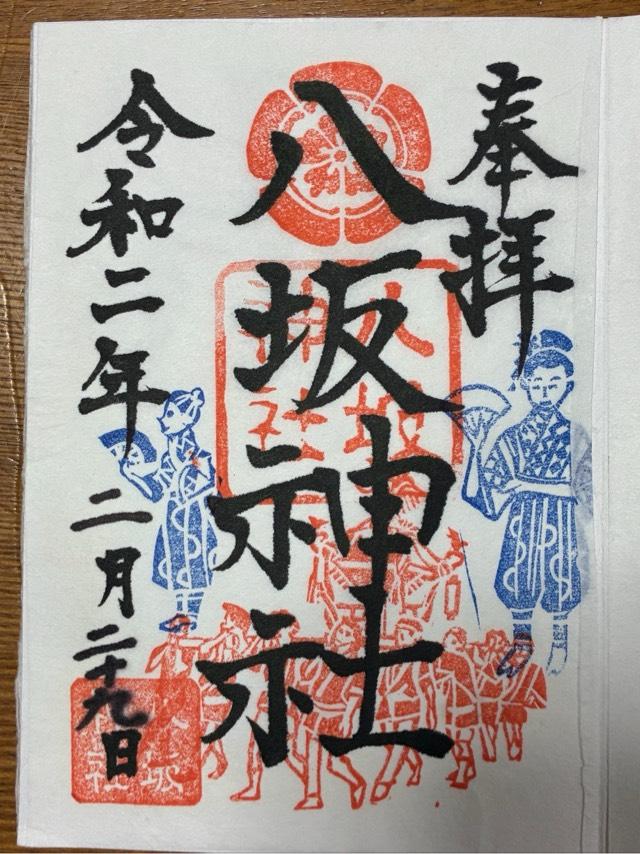 奉拝
八坂神社
令和二年二月二十九日
八坂
神社